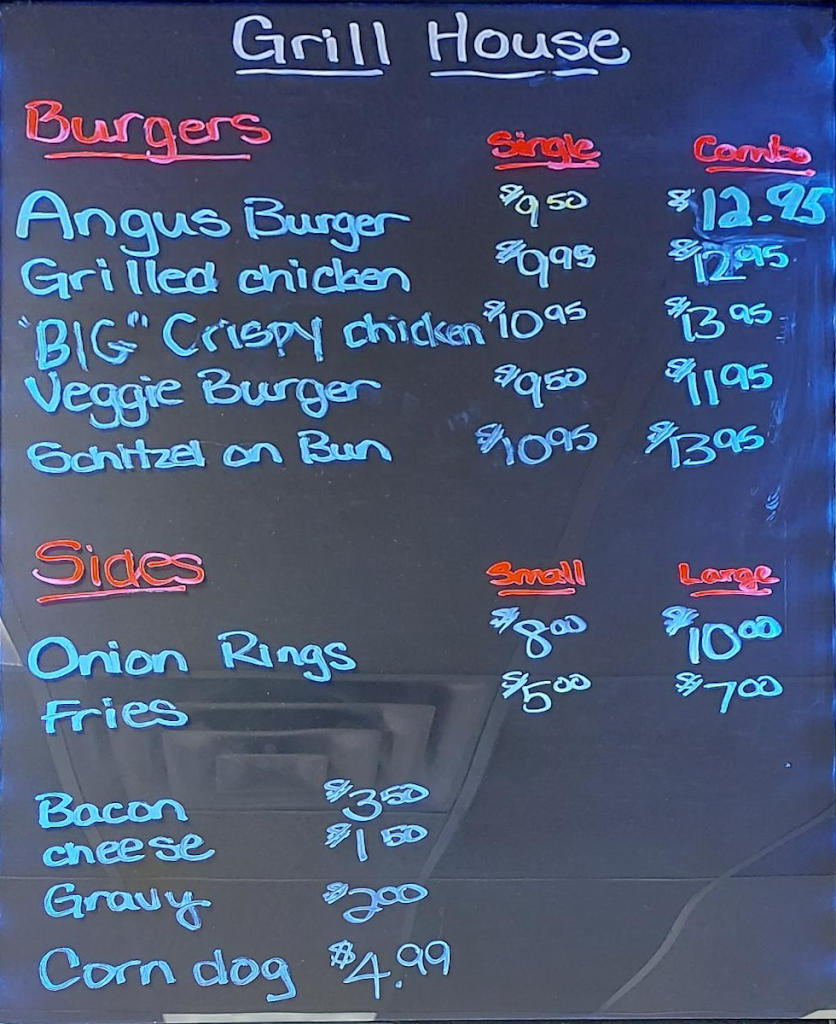 Grill House
Burgers Single Combo
Angus Burger $9 50 $12.95
Grilled chicken $9 95 $12 95
"BIG" Crispy chicken $10 95 $13 95
Veggie Burger $9 50 $11 95
Schitzel on Bun $10 95 $13 95
Sides Small Large
Onion Rings $8 00 $10 00
Fries $5 00 $7 00
Bacon $3 50
cheese $1 50
Gravy $2 00
Corn dog $4.99